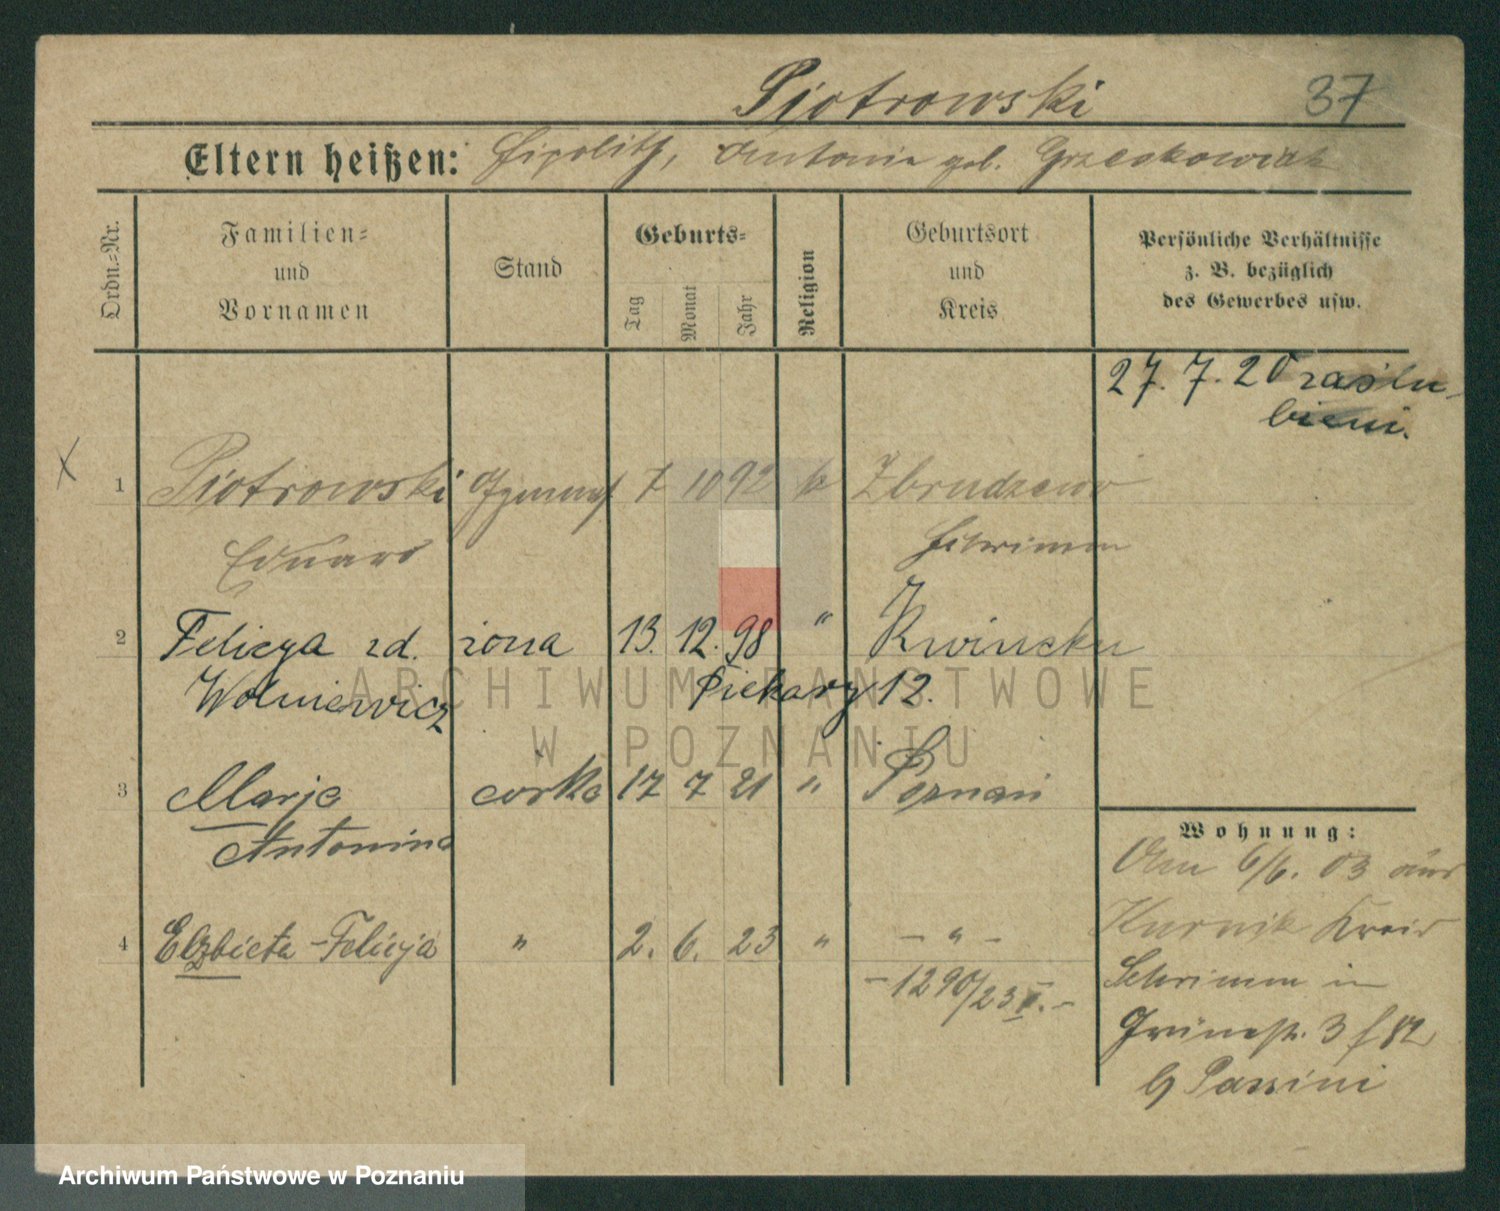 Piotrowski 37
Eltern heißen: Hipolith, Antonie geb. Grzeskowiak
Ordn.=Nr.
Familien=
und
Vornamen
Stand
Geburts=
Tag
Monat
Jahr
Religion
Geburtsort
und
Kreis
Persönliche Verhältnisse
z. B. bezüglich
des Gewerbes usw.
27. 7. 20 zaślu-
bieni.
1 Piotrowski 7 10 92 k Zbrudzewo
Eduard Schrimm
2 Felicya zd. żona 13. 12. 98 "
Wolniewicz Piekary 12.
3 Marja córka 17 7 21 " Poznań
Antonina
4 Elżbieta-Felicja " 2. 6. 23 " - " -
- 1290/23 II. -
Wohnung:
Am 6/6. 03 aus
Kurnik Kreis
Schrimm in
Grünestr. 3
b/ Passini
ARCHIWUM PAŃSTWOWE
W POZNANIU
Archiwum Państwowe w Poznaniu